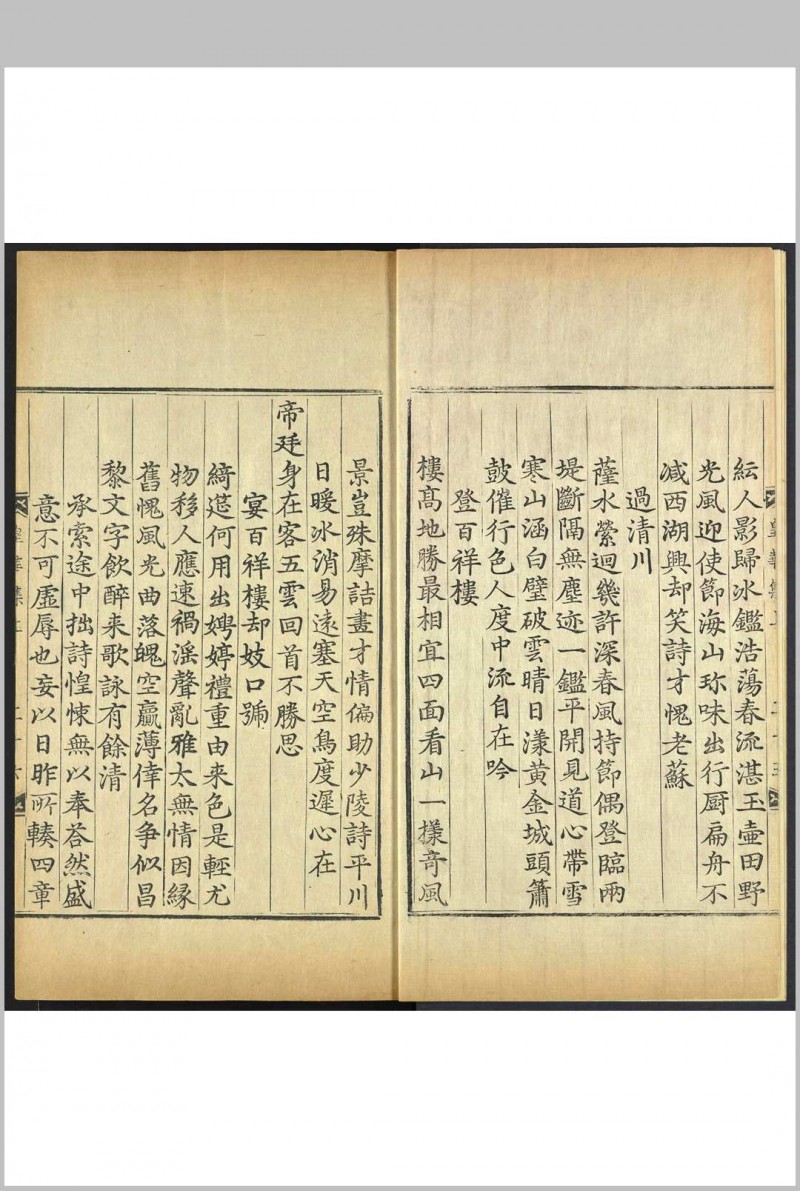 紜人影歸冰鑑浩蕩春流湛玉壺田野
光風迎使節海山珎味出行厨扁舟不
减西湖興却笑詩才愧老蘇
過清川
薩水縈迴幾許深春風持節偶登臨兩
堤斷隔無塵迹一鑑平開見道心帶雪
寒山涵白璧破雲晴日漾黃金城頭簫
鼓催行色人度中流自在吟
登百祥樓
樓髙地勝最相宜四面看山一㨾竒風
景豈殊摩詰畫才情偏助少陵詩平川
日暖冰消易遠塞天空鳥度遲心在
帝廷身在客五雲回首不勝思
宴百祥樓却妓口號
綺筵何用出娉婷禮重由来色是輕尤
物移人應速禍淫聲亂雅太無情因緣
舊愧風光曲落魄空贏薄倖名争似昌
黎文字飲醉来歌詠有餘清
承索途中拙詩惶悚無以奉荅然盛
意不可虚辱也妄以日昨所輳四章